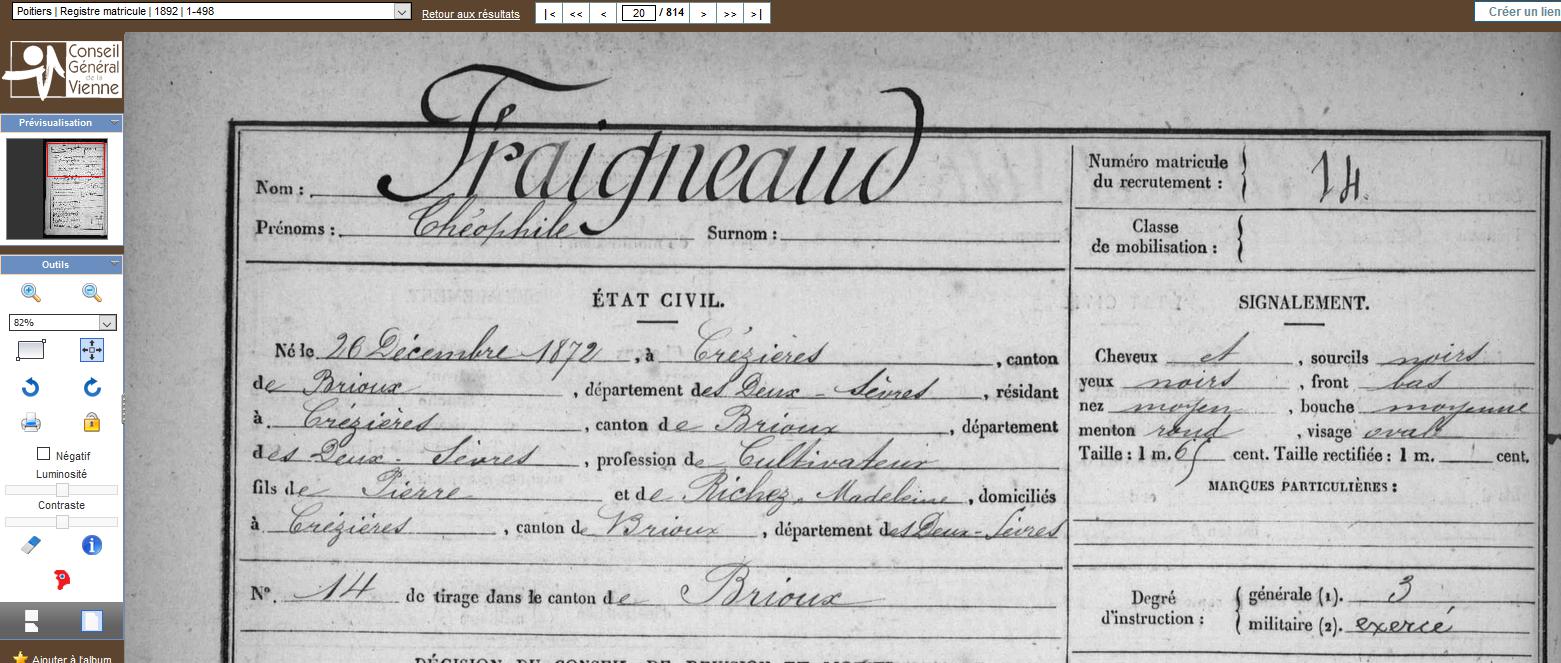 Poitiers | Registre matricule | 1892 | 1-498
Retour aux résultats
|<
<<
<
20 / 814
>
>>
>|
Créer un lien
Conseil
Général
de la
Vienne
Prévisualisation
Outils
82%
Négatif
Luminosité
Contraste
Ajouter à l'album
Nom : Fraigneaud
Prénoms : Théophile Surnom :
Numéro matricule
du recrutement : 14.
Classe
de mobilisation :
ÉTAT CIVIL.
Né le 26 Décembre 1872, à Crézières, canton
de Brioux, département des Deux-Sèvres, résidant
à Crézières, canton de Brioux, département
des Deux-Sèvres, profession de Cultivateur
fils de Pierre et de Richez, Madeleine, domiciliés
à Crézières, canton de Brioux, département des Deux-Sèvres
N° 14 de tirage dans le canton de Brioux
SIGNALEMENT.
Cheveux et, sourcils noirs
yeux noirs, front bas
nez moyen, bouche moyenne
menton rond, visage ovale
Taille : 1 m. 65 cent. Taille rectifiée : 1 m. cent.
MARQUES PARTICULIÈRES :
Degré
d'instruction :
générale (1). 3
militaire (2). exercé